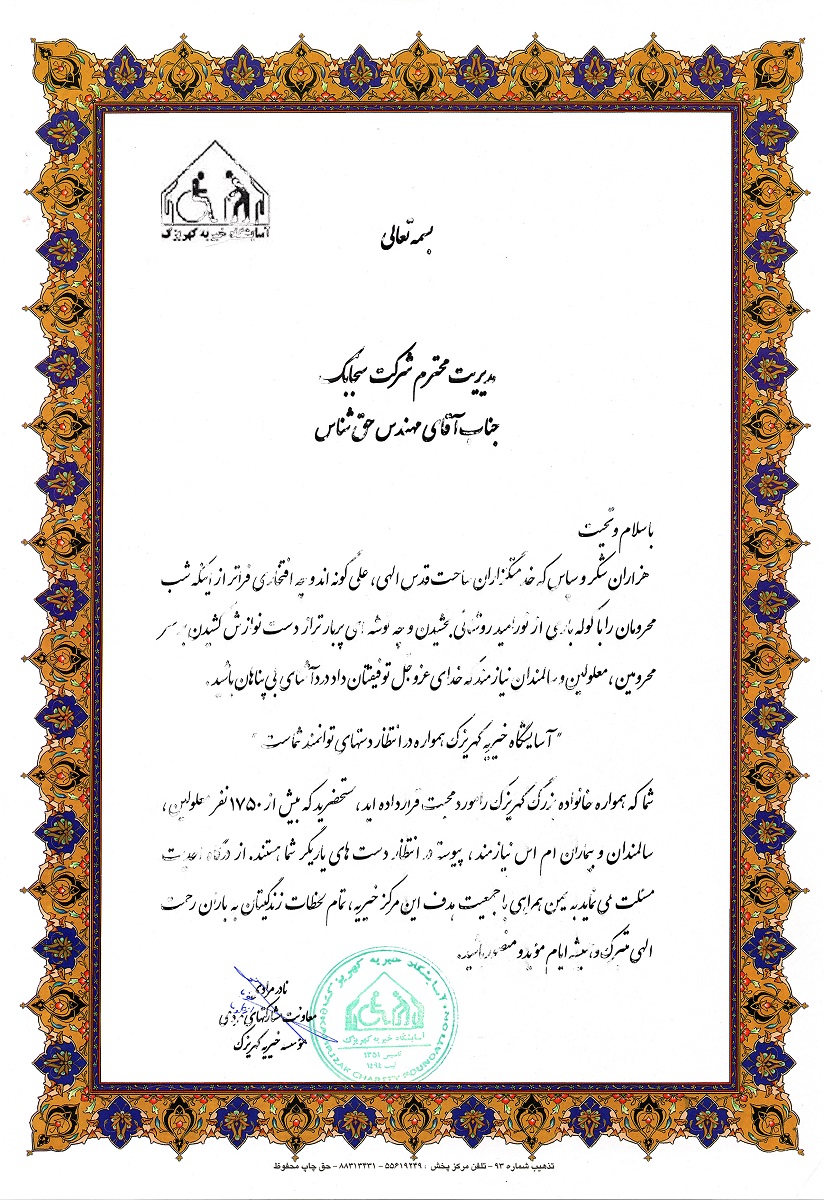 آسایشگاه خیریه کهریزک
بسمه تعالی
مدیریت محترم شرکت سحابابک
جناب آقای مهندس حق شناس
با سلام و تحیت
هزاران شکر و سپاس که خدمتگزاران ساحت قدس الهی، علی گونه اند و چه افتخاری فراتر از اینکه شب
محرومان را با کوله باری از نور امید روشنائی بخشیدن و چه توشه ای پربارتر از دست نوازش کشیدن بر سر
محرومین، معلولین و سالمندان نیازمند که خدای عزوجل توفیقتان داد درد آشنای بی پناهان باشید.
"آسایشگاه خیریه کهریزک همواره در انتظار دستهای توانمند شماست"
شما که همواره خانواده بزرگ کهریزک را مورد محبت قرار داده اید، مستحضرید که بیش از ۱۷۵۰ نفر معلولین،
سالمندان و بیماران ام اس نیازمند، پیوسته در انتظار دست های یاریگر شما هستند. از درگاه احدیت
مسئلت می نماید به یمن همراهی با جمعیت هدف این مرکز خیریه، تمام لحظات زندگیتان به باران رحمت
الهی متبرک و همیشه ایام موید و منصور باشید.
نادر مرادی
معاونت مشارکتهای مردمی
موسسه خیریه کهریزک
آسایشگاه خیریه کهریزک
آسایشگاه خیریه کهریزک
تاسیس ۱۳۵۱
KAHRIZAK CHARITY FOUNDATION
تذهیب شماره ۹۳ - تلفن مرکز پخش : ۵۵۶۱۹۲۴۹ - ۸۸۳۱۳۴۳۱ - حق چاپ محفوظ